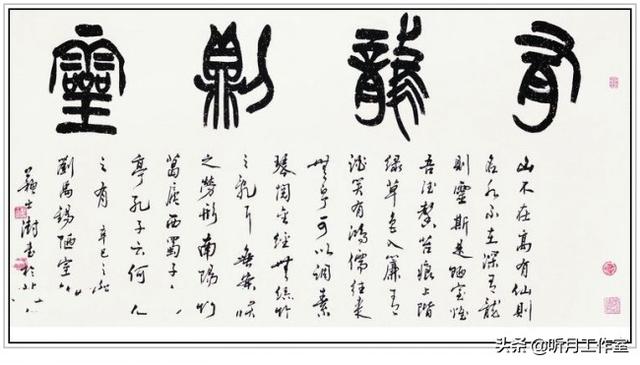 有龍則靈
山不在高有仙則
名水不在深有龍
則靈斯是陋室惟
吾德馨苔痕上階
綠草色入簾青
談笑有鴻儒往來
無白丁可以調素
琴閱金經無絲竹
之亂耳無案牘
之勞形南陽諸
葛廬西蜀子雲
亭孔子云何陋
之有 辛巳之秋
劉禹錫陋室銘
蘇士澍書於北京
头条 @昕月工作室